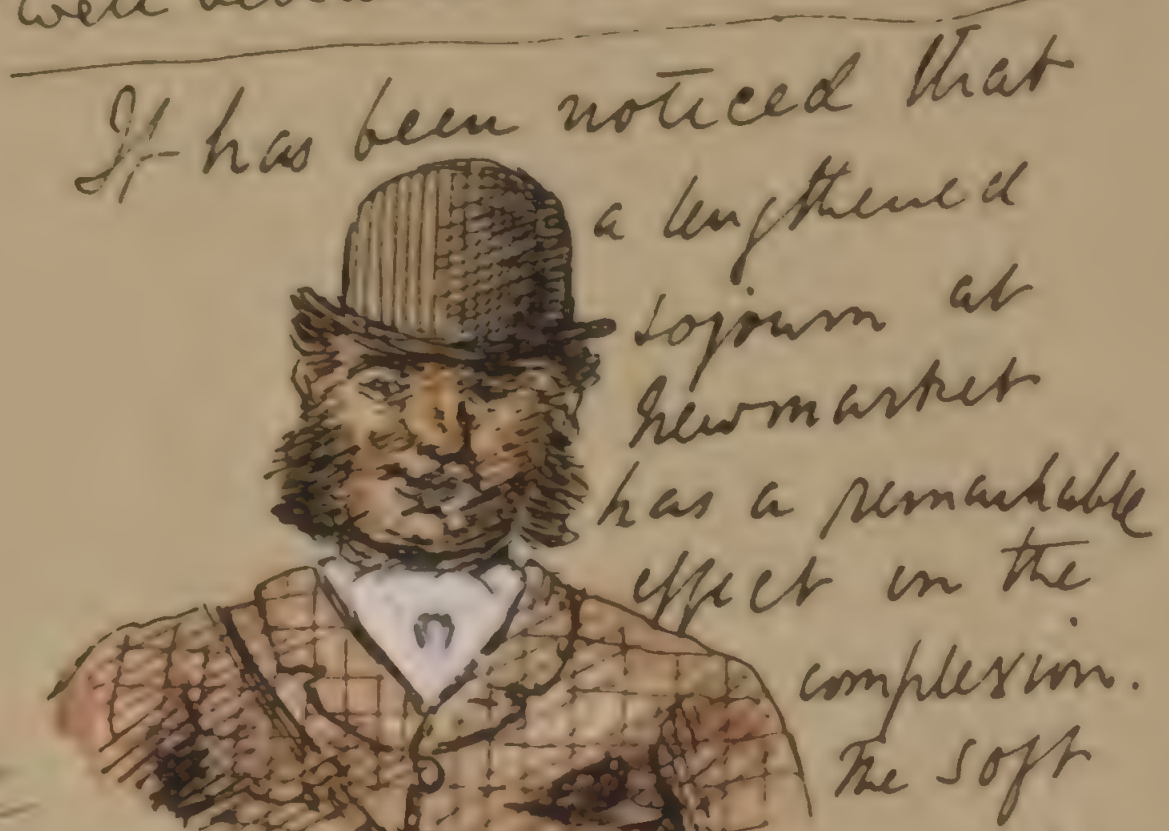 well
It has been noticed that
a lengthened
sojourn at
Newmarket
has a remarkable
effect on the
complexion.
The soft